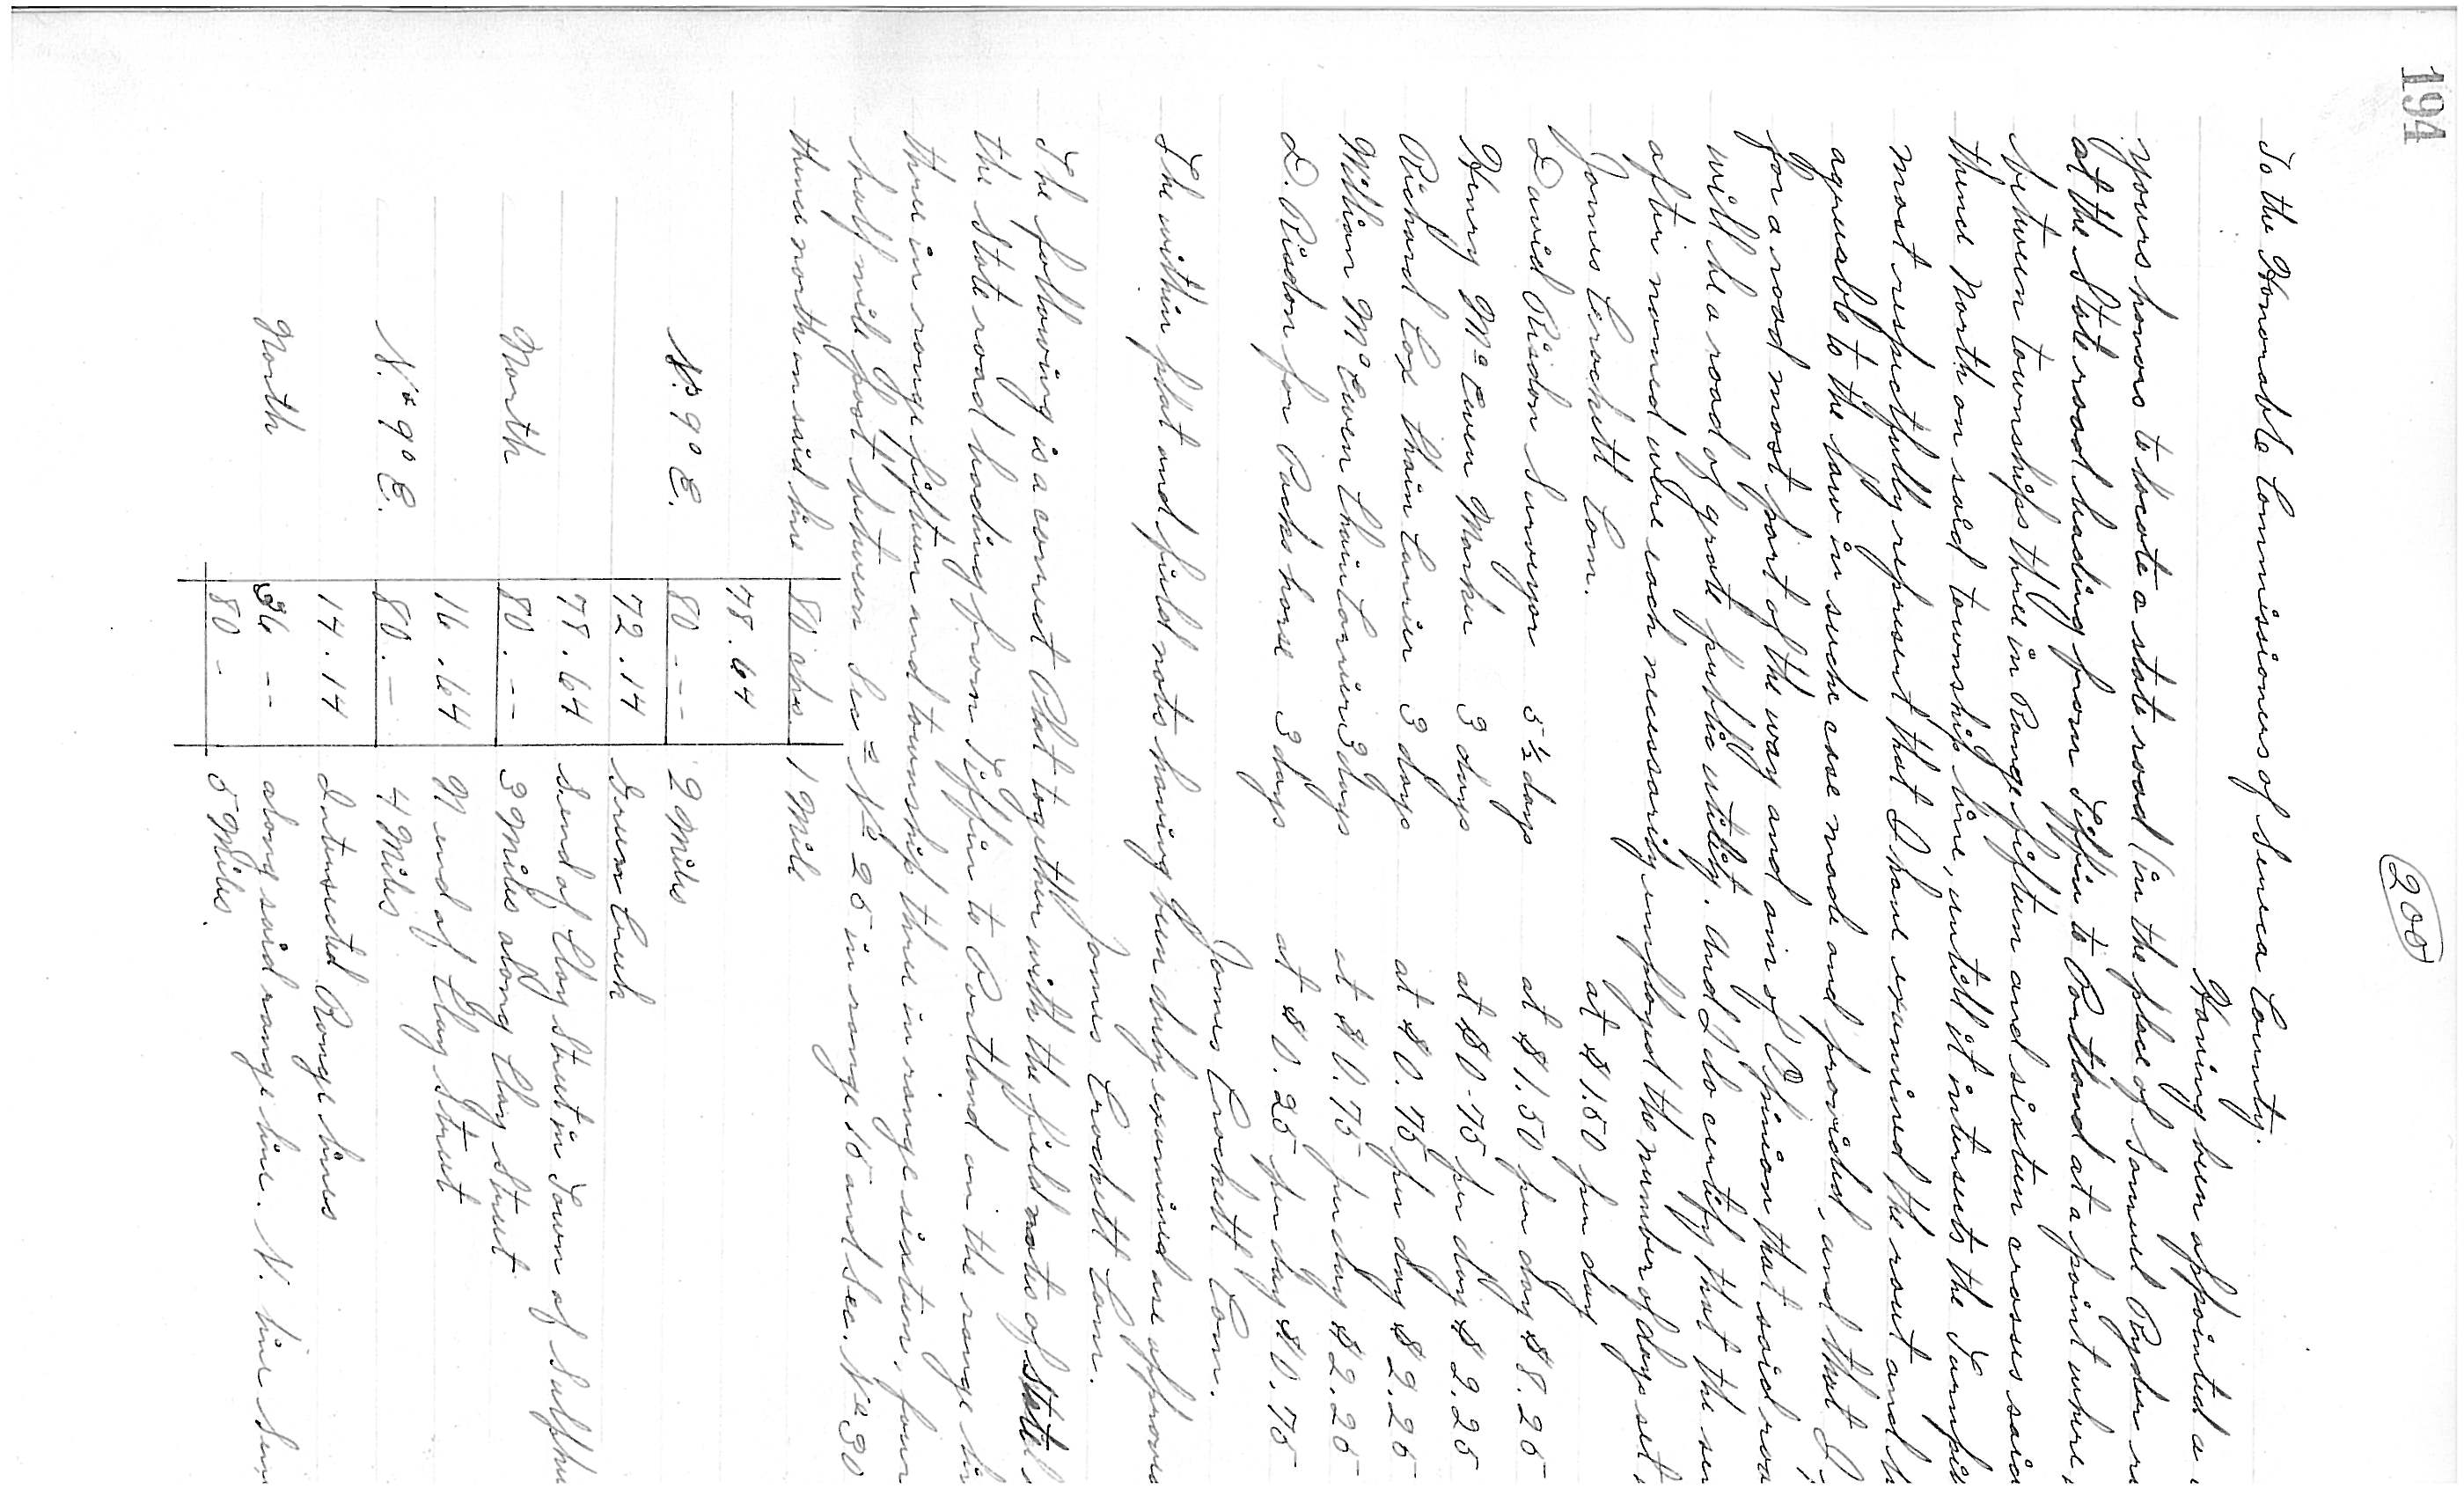 194
(205)
To the Honorable Commissioners of Seneca County.
Having been appointed a
yours honors to locate a state road (in the place of Samuel Ryder re
at the State road leading from Tiffin to Portland at a point where,
between townships three in Range fifteen and sixteen crosses said
thence North on said township line, untill it intersects the Turnpik
most respectfully represent that I have examined the rout and h
agreeable to the law in suche case made and provided, and that I
for a road most part of the way and aim of Opinion that said roa
will be a road of grate public utility. And I do certify that the ser
after named were each necessarily employed the number of days set
James Crockett Com. at $1.50 per day
David Risdon Surveyor 5 ½ days at $1.50 per day $8.25
Henry McEwen Marker 3 days at $0.75 per day $2.25
Richard Cox Chain Carrier 3 days at $0.75 per day $2.25
William McEwen Chain Carrier 3 days at $0.75 per day $2.25
D. Risdon for Packs horse 3 days at $0.25 per day $0.75
James Crockett Com.
The within plat and field nots having been duly examined are approved
James Crockett Com.
The following is a correct Plat together with the field notes of State
the State road leading from Tiffin to Portland on the range lin
three in range fifteen and township three in range sixteen, four
half mile post between Sec= No 25 in range 15 and Sec. No 30
thence north on said line 80 chs. 1 Mile
78.64
No 9° E. 80 -- 2 Miles
72.14 Creek
78.64 S end of Clay Street in Town of Sulphu
North 80. -- 3 Miles along Clay Street
16.64 N end of Clay Street
No 9° E. 80. -- 4 Miles
14.14 Intersected Range lines
North 36 -- along said range line. N. line Sen
80 - 5 Miles.